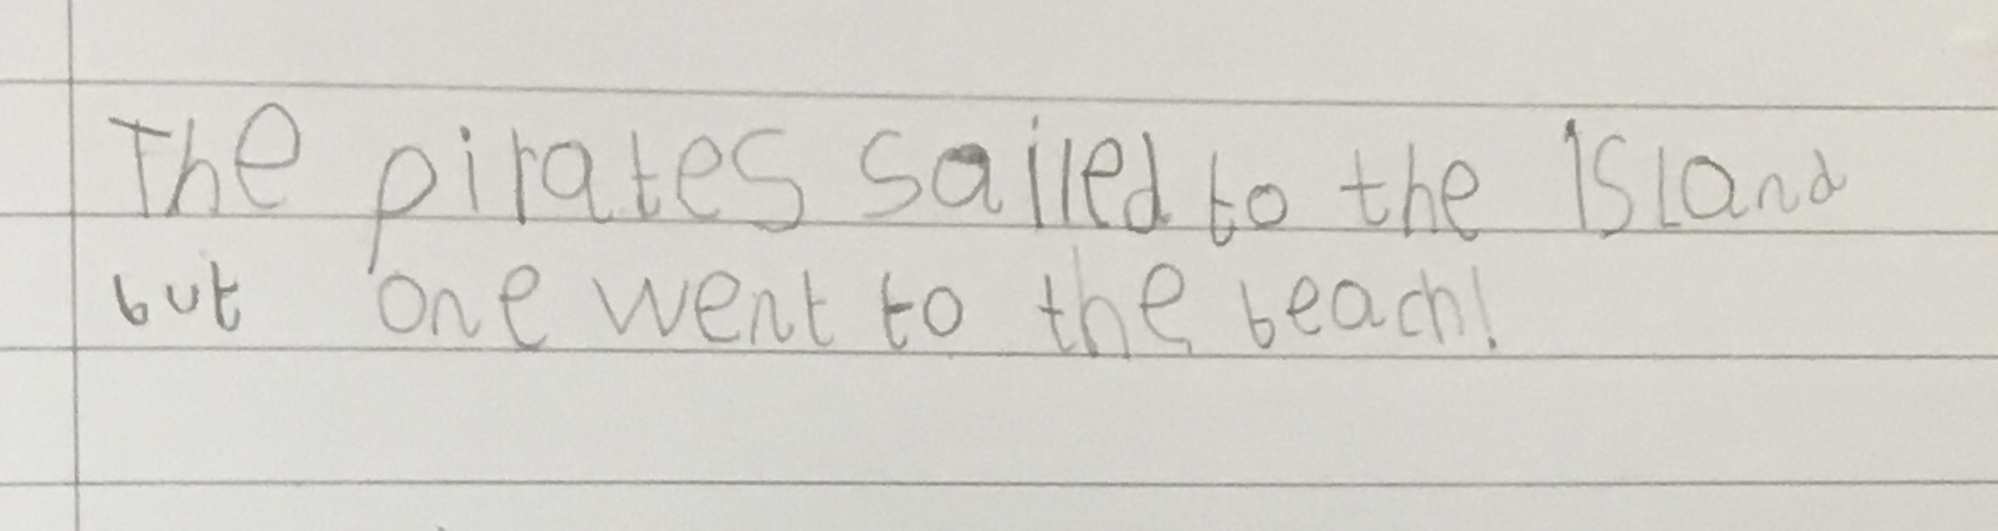 The pirates sailed to the island
but one went to the beach!